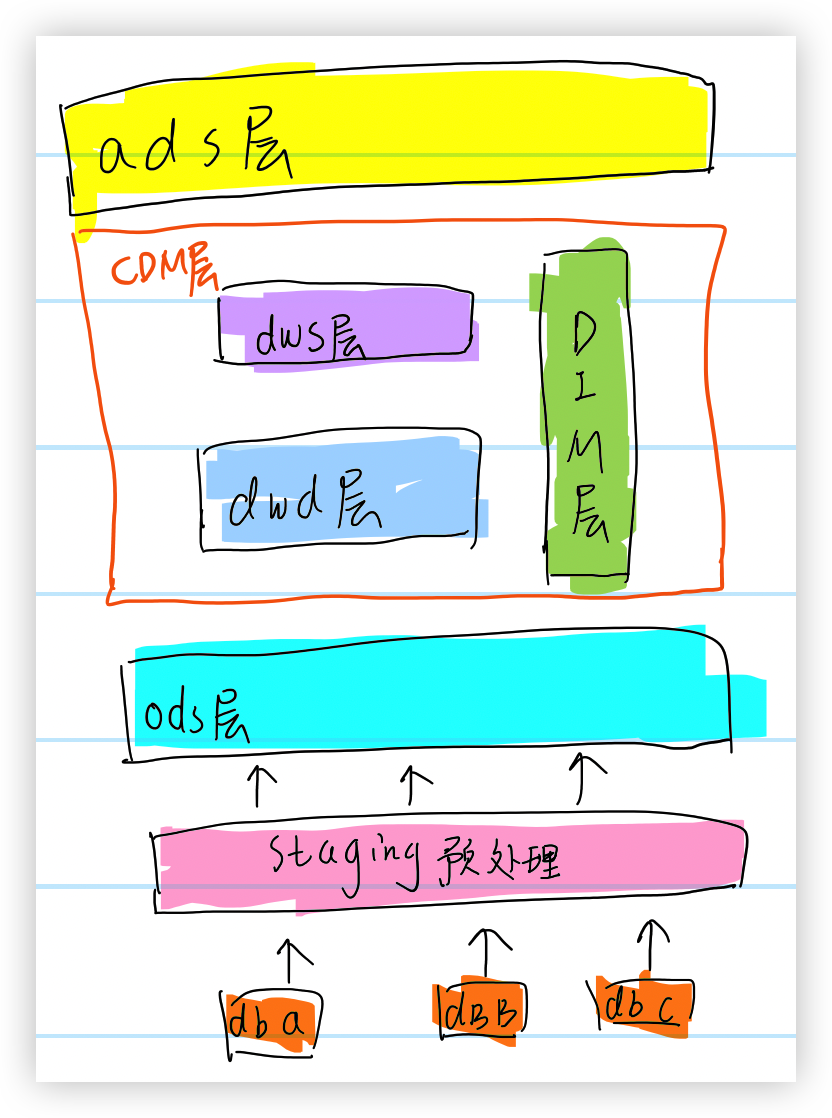 ads层
CDM层
dws层
DIM层
dwd层
ods层
staging预处理
dba
dBB
dbc